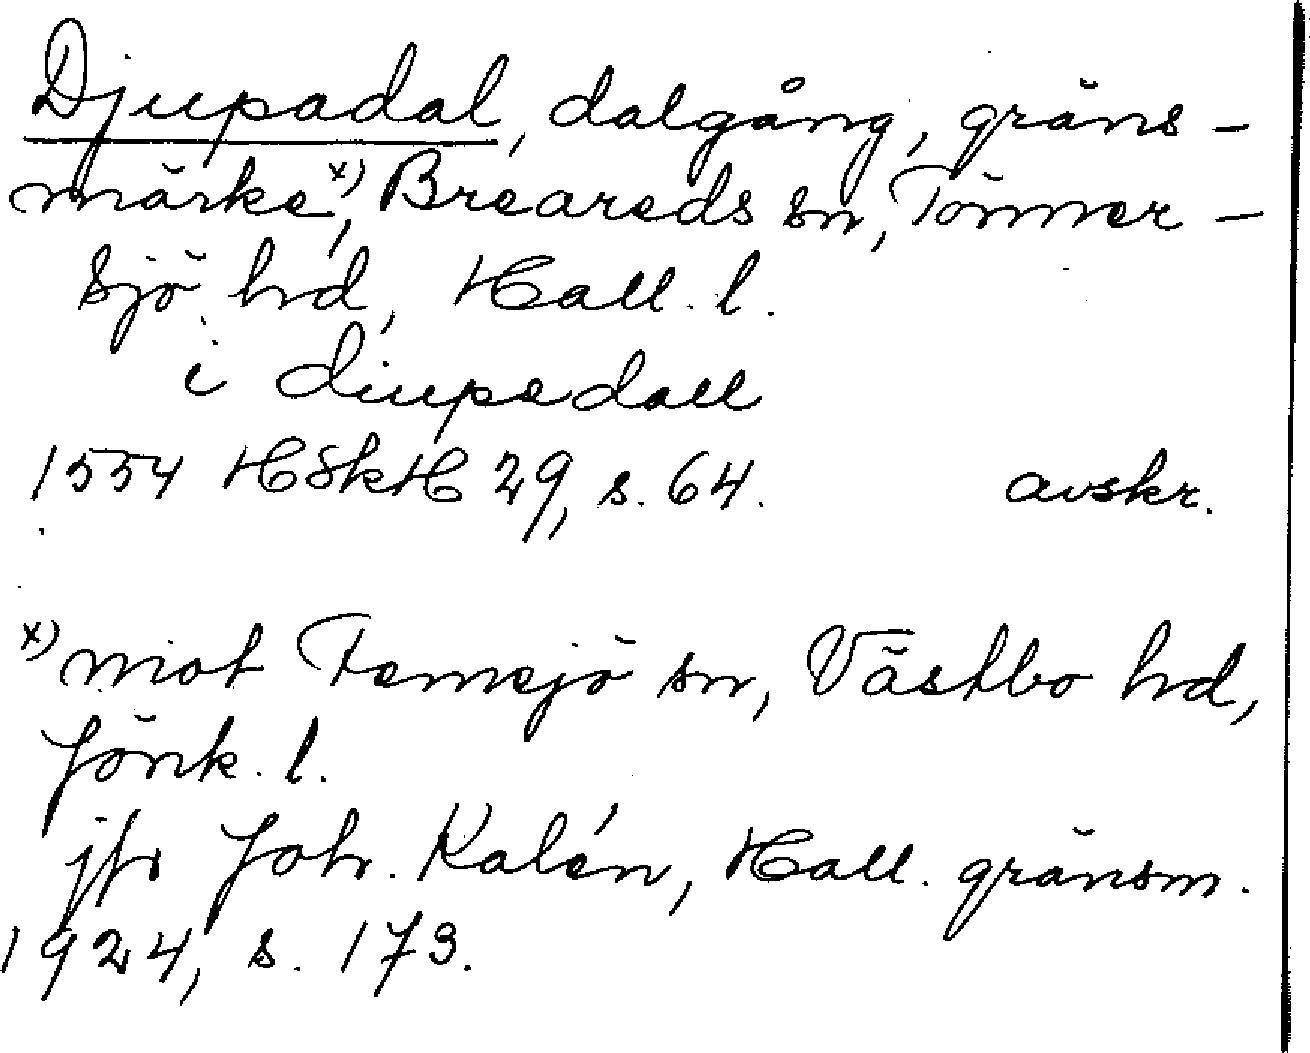 Djupadal, dalgång, gräns-
märke x), Breareds sn, Tönner-
sjö hd, Hall. l.
i diupedall
1554 HSkH 29, s. 64. avskr.
x) mot Femsjö sn, Västbo hd,
Jönk. l.
jfr Joh. Kalén, Hall. gränsm.
1924, s. 173.